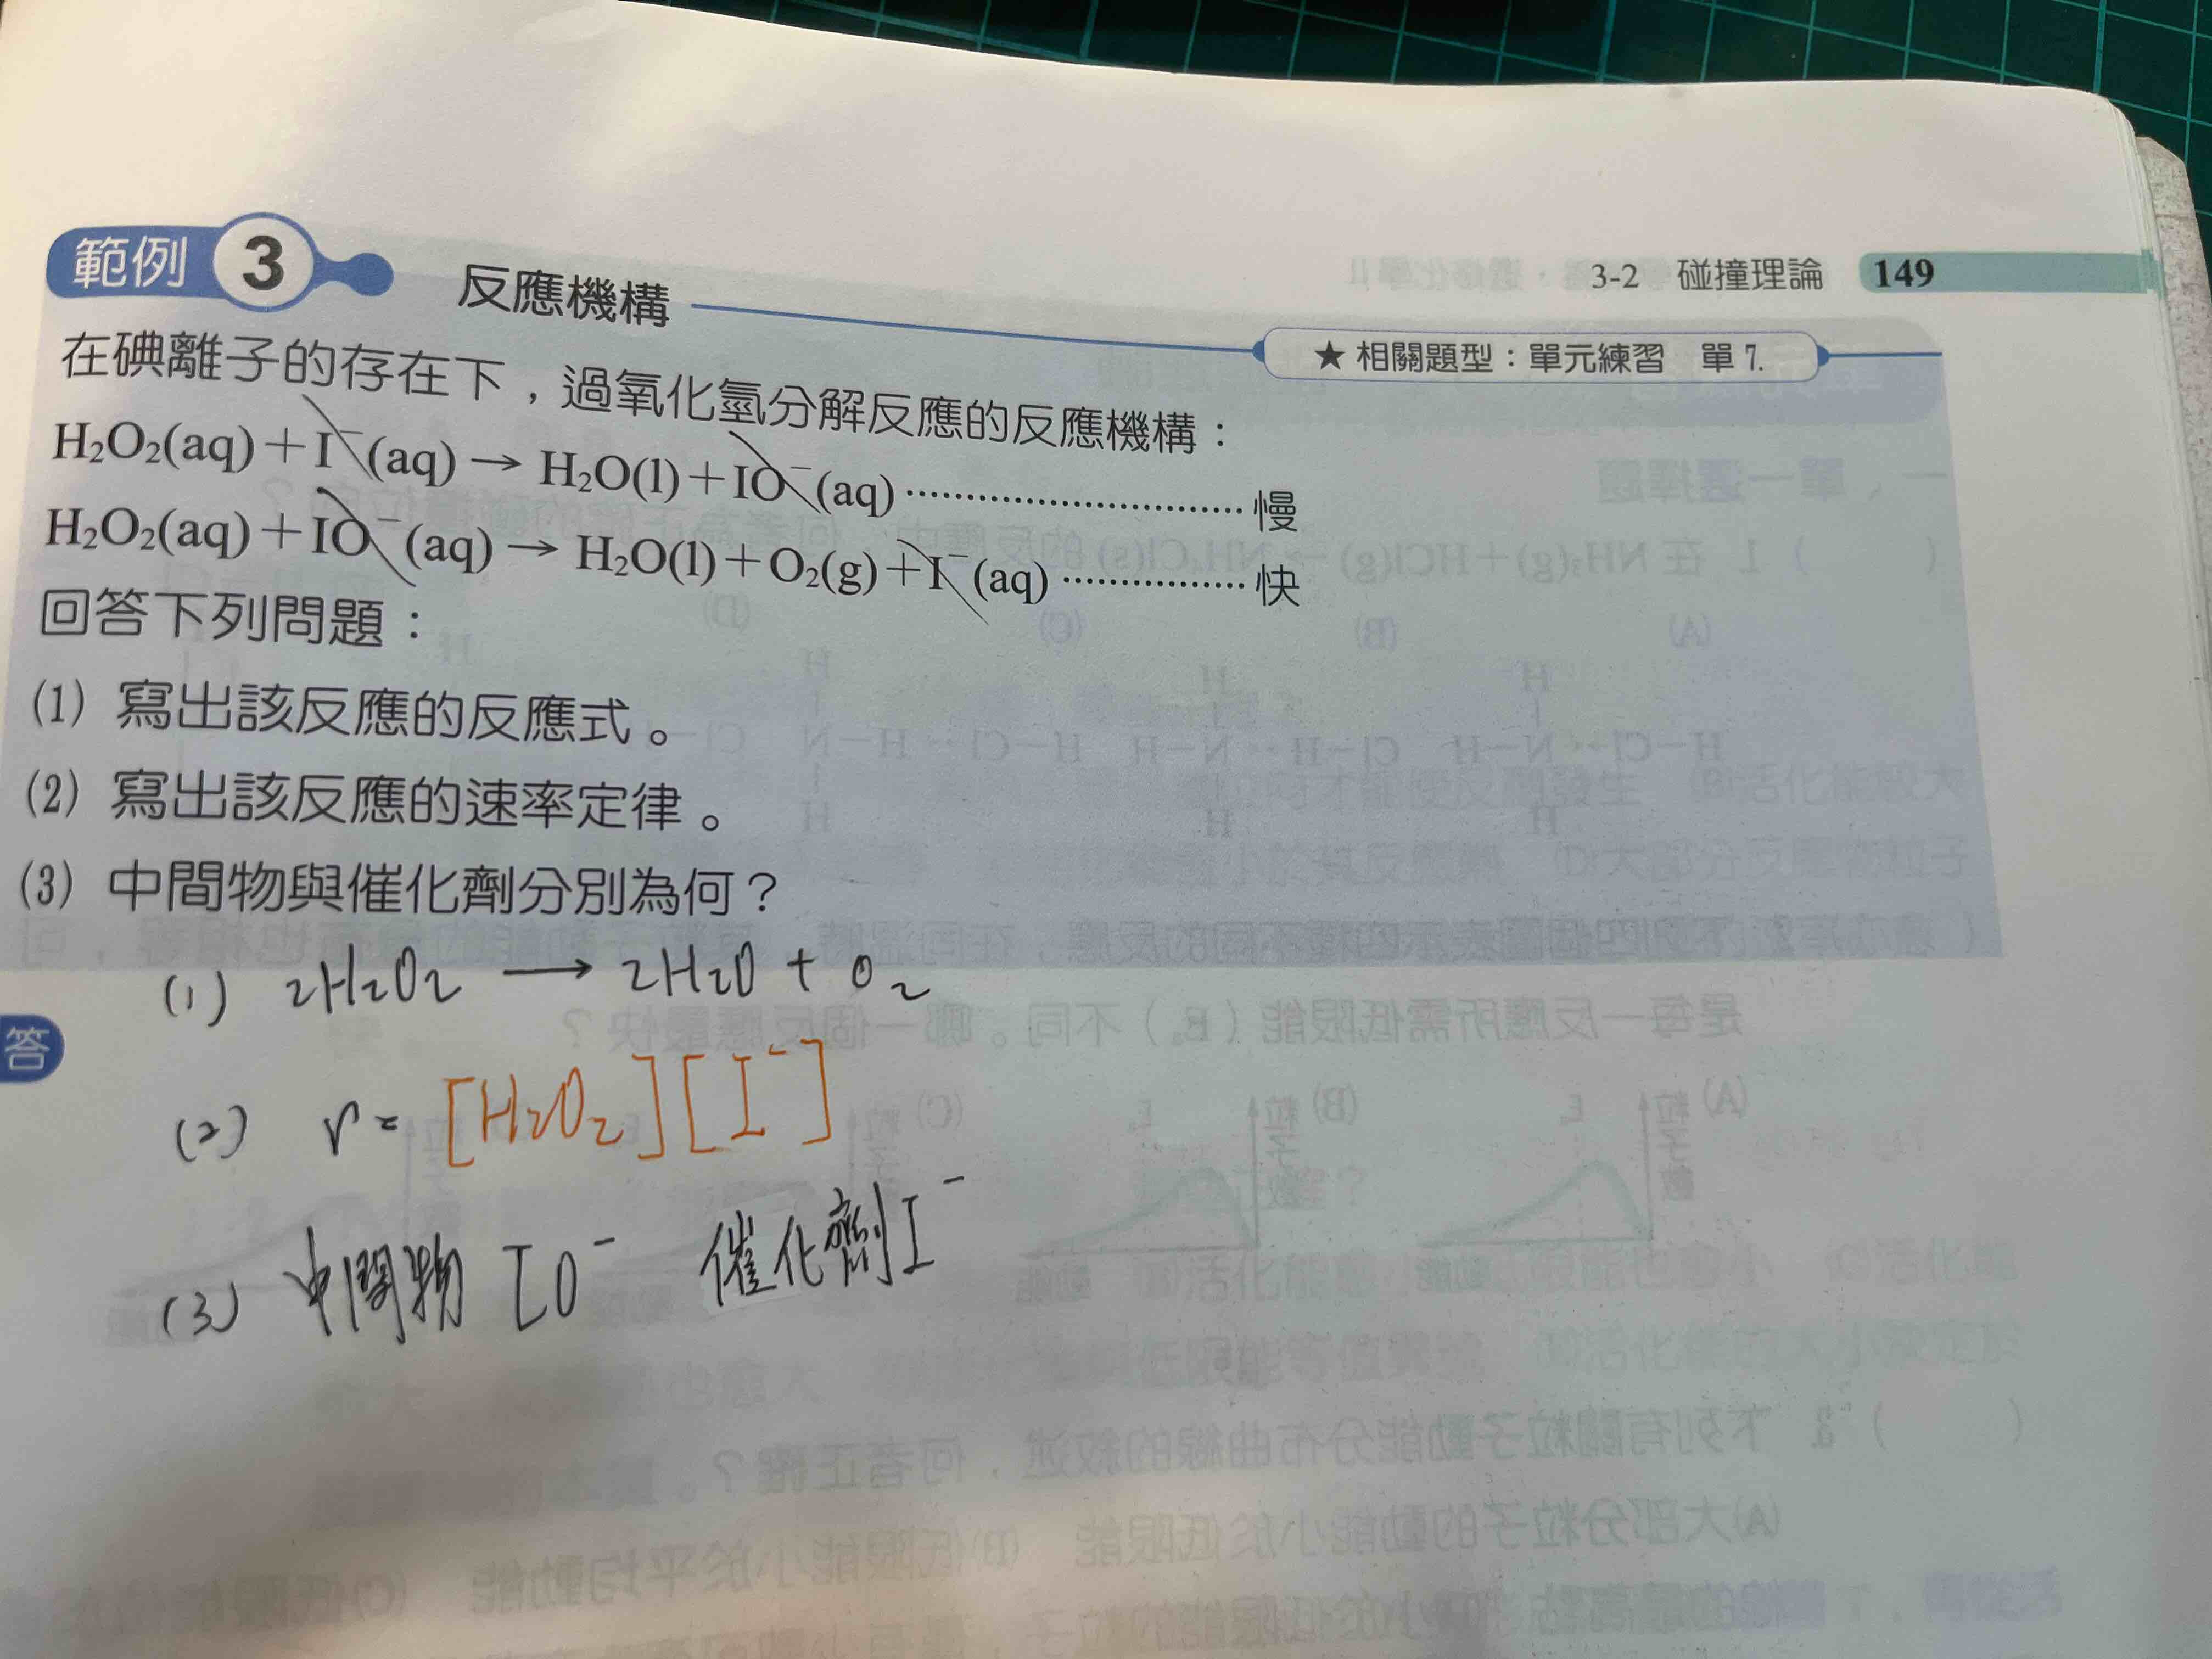 3-2 碰撞理論 149
範例 3 反應機構
★相關題型：單元練習 單 7.
在碘離子的存在下，過氧化氫分解反應的反應機構：
H₂O₂(aq)＋I⁻(aq)→H₂O(l)＋IO⁻(aq)⋯⋯⋯⋯⋯⋯⋯⋯⋯慢
H₂O₂(aq)＋IO⁻(aq)→H₂O(l)＋O₂(g)＋I⁻(aq)⋯⋯⋯⋯⋯快
回答下列問題：
(1) 寫出該反應的反應式。
(2) 寫出該反應的速率定律。
(3) 中間物與催化劑分別為何？
答
(1) 2H₂O₂ → 2H₂O + O₂
(2) r = [H₂O₂][I⁻]
(3) 中間物 IO⁻ 催化劑I⁻